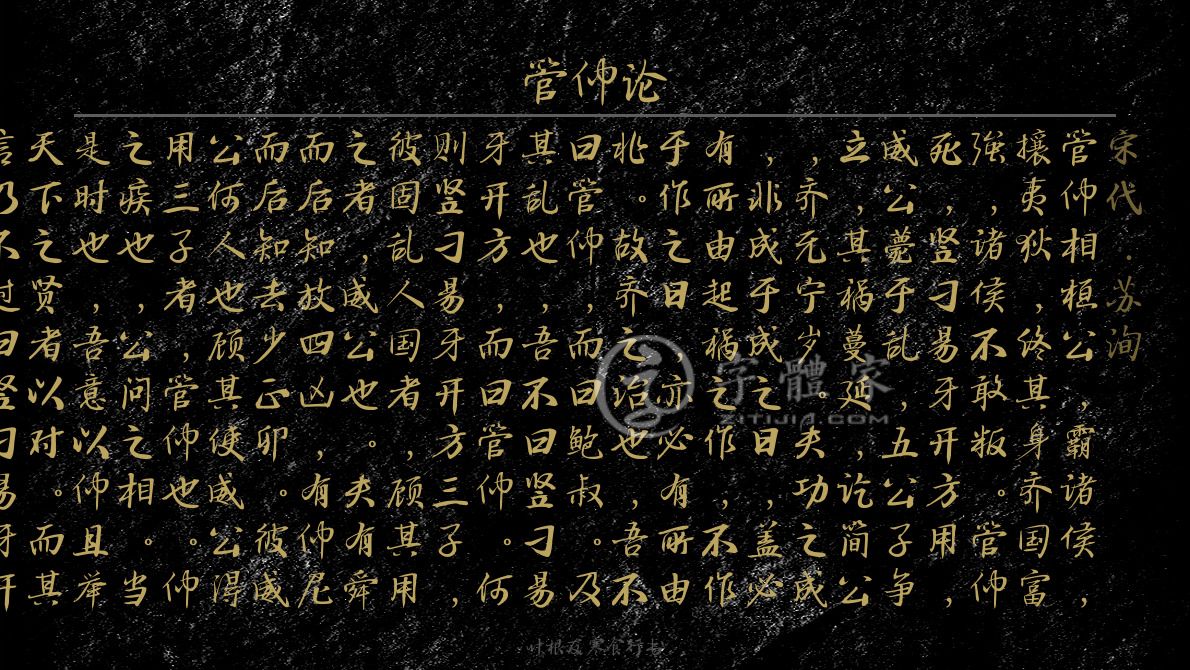 管仲论
宋代·苏洵
管仲相桓公,霸诸侯,
攘夷狄,终其身齐国富
强,诸侯不敢叛。管仲
死,竖刁易牙开方用,
威公薨于乱,五公子争
立,其祸蔓延,讫简公
,齐无宁岁。夫功之成
,非成于成之日,盖必
有所由起祸之作,不作
于作之日,亦必有所由
兆。故齐之治也,吾不
曰管仲,而曰鲍叔。及
其乱也,吾不曰竖刁易
牙开方,而曰管仲。何
则竖刁易牙开方三子,
彼固乱人国者,顾其用
之者,威公也。夫有舜
而后知放四凶,有仲尼
而后知去少正卯。彼威
公何人也顾其使威公得
用三子者,管仲也。仲
之疾也,公问之相。当
是时也,吾意以仲且举
天下之贤者以对。而其
言乃不过曰竖刁易牙开
字體家
ZITIJIA.COM
叶根友寒食行书